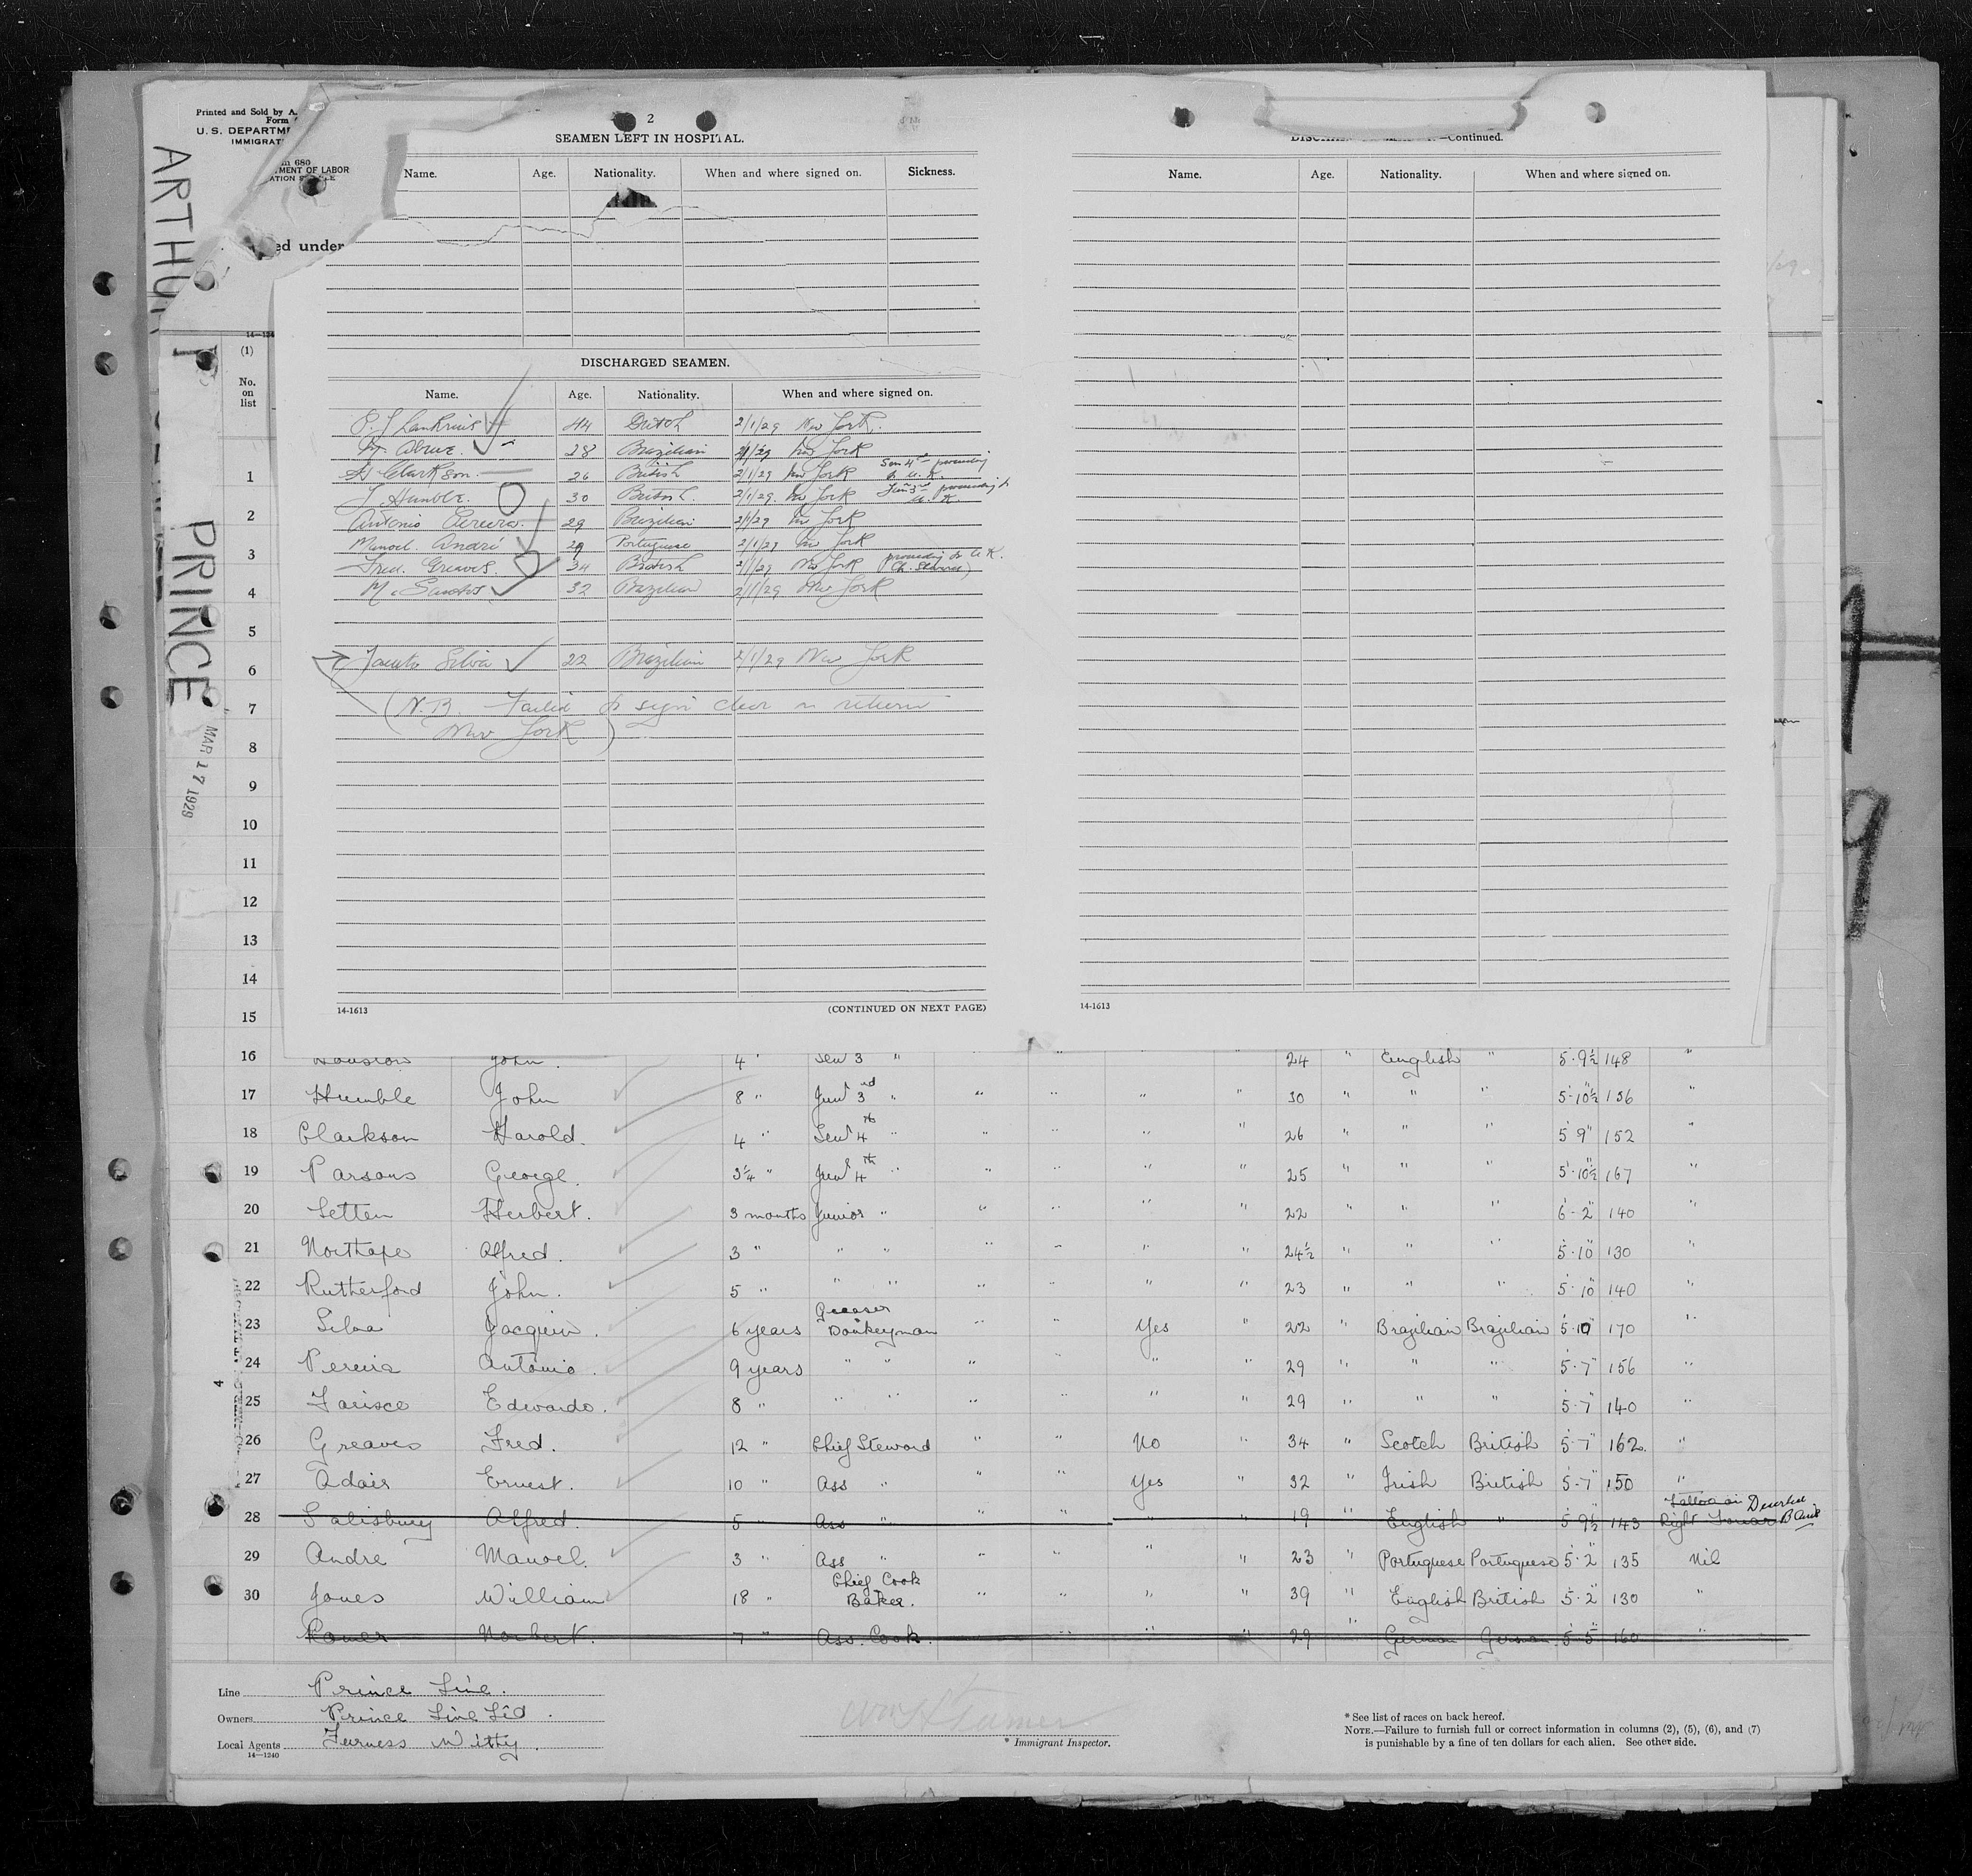 Printed and Sold by A.
Form
U. S. DEPARTME
IMMIGRAT
m 680
MENT OF LABOR
ATION S
ed under
ARTHUR
PRINCE
MAR 17 1929
2
SEAMEN LEFT IN HOSPITAL.
Name. Age. Nationality. When and where signed on. Sickness.
DISCHARGED SEAMEN.
Name. Age. Nationality. When and where signed on.
44 Dutch 2/1/29 New York.
28 Brazilian 2/1/29 New York
H Clarkson. 26 British 2/1/29 New York Sen 4th proceeding to U. K.
J Humble. 30 British. 2/1/29. New York Jun 3rd proceeding to U. K.
Antonio Pereira. 29 Brazilian 2/1/29 New York
Manoel. André 29 Portuguese 2/1/29 New York
Fred. Greaves. 34 British 2/1/29 New York (proceeding to U K. Ch. Steward)
M. Santos 32 Brazilian 2/1/29 New York
Silva 22 Brazilian 2/1/29 New York
(N.B. Failed to sign clear on return
New York)
14-1613 (CONTINUED ON NEXT PAGE)
—Continued.
Name. Age. Nationality. When and where signed on.
14-1613
14—124
(1)
No.
on
list
1
2
3
4
5
6
7
8
9
10
11
12
13
14
15
16 John. 4 " Sen 3 " " " " 24 " English " 5·9½ 148 "
17 Humble John 8 " Jun 3rd " " " " " 30 " " " 5·10½ 136 "
18 Clarkson Harold. 4 " Sen 4th " " " " " 26 " " " 5 9" 152 "
19 Parsons George. 3¼ " Jun 4th " " " " " 25 " " " 5·10½ 167 "
20 Setten Herbert. 3 months Junior " " " " " 22 " " " 6-2" 140 "
21 Northope Alfred. 3 " " " " " " " 24½ " " " 5·10 130 "
22 Rutherford John. 5 " " " " " " " 23 " " " 5·10 140 "
23 Silva Jacquin. 6 years Greaser Donkeyman " " Yes " 22 " Brazilian Brazilian 5·10 170 "
24 Pereira Antonio. 9 years " " " " " " 29 " " " 5·7" 156 "
25 Edwardo. 8 " " " " " " " 29 " " " 5·7" 140 "
26 Greaves Fred. 12 " Chief Steward " " No " 34 " Scotch British 5·7" 162. "
27 Adair Ernest. 10 " Ass " " " Yes " 32 " Irish British 5·7" 150 "
28 Salisbury Alfred. 5 " Ass " " " " " 19 " English " 5 9½ 143 Tattoo on Right Deserted B Aires
29 Andre Manoel. 3 " Ass " " " " " 23 " Portuguese Portuguese 5·2" 135 Nil
30 Jones William 18 " Chief Cook Baker. " " " " 39 " English British 5·2" 130 "
Norbert. 7 " Ass. Cook. " " " 29 " German German 5·5" 160 "
Line Prince Line.
Owners Prince Line Ltd.
Local Agents Furness Withy.
14—1240
* Immigrant Inspector.
* See list of races on back hereof.
NOTE.—Failure to furnish full or correct information in columns (2), (5), (6), and (7)
is punishable by a fine of ten dollars for each alien. See other side.